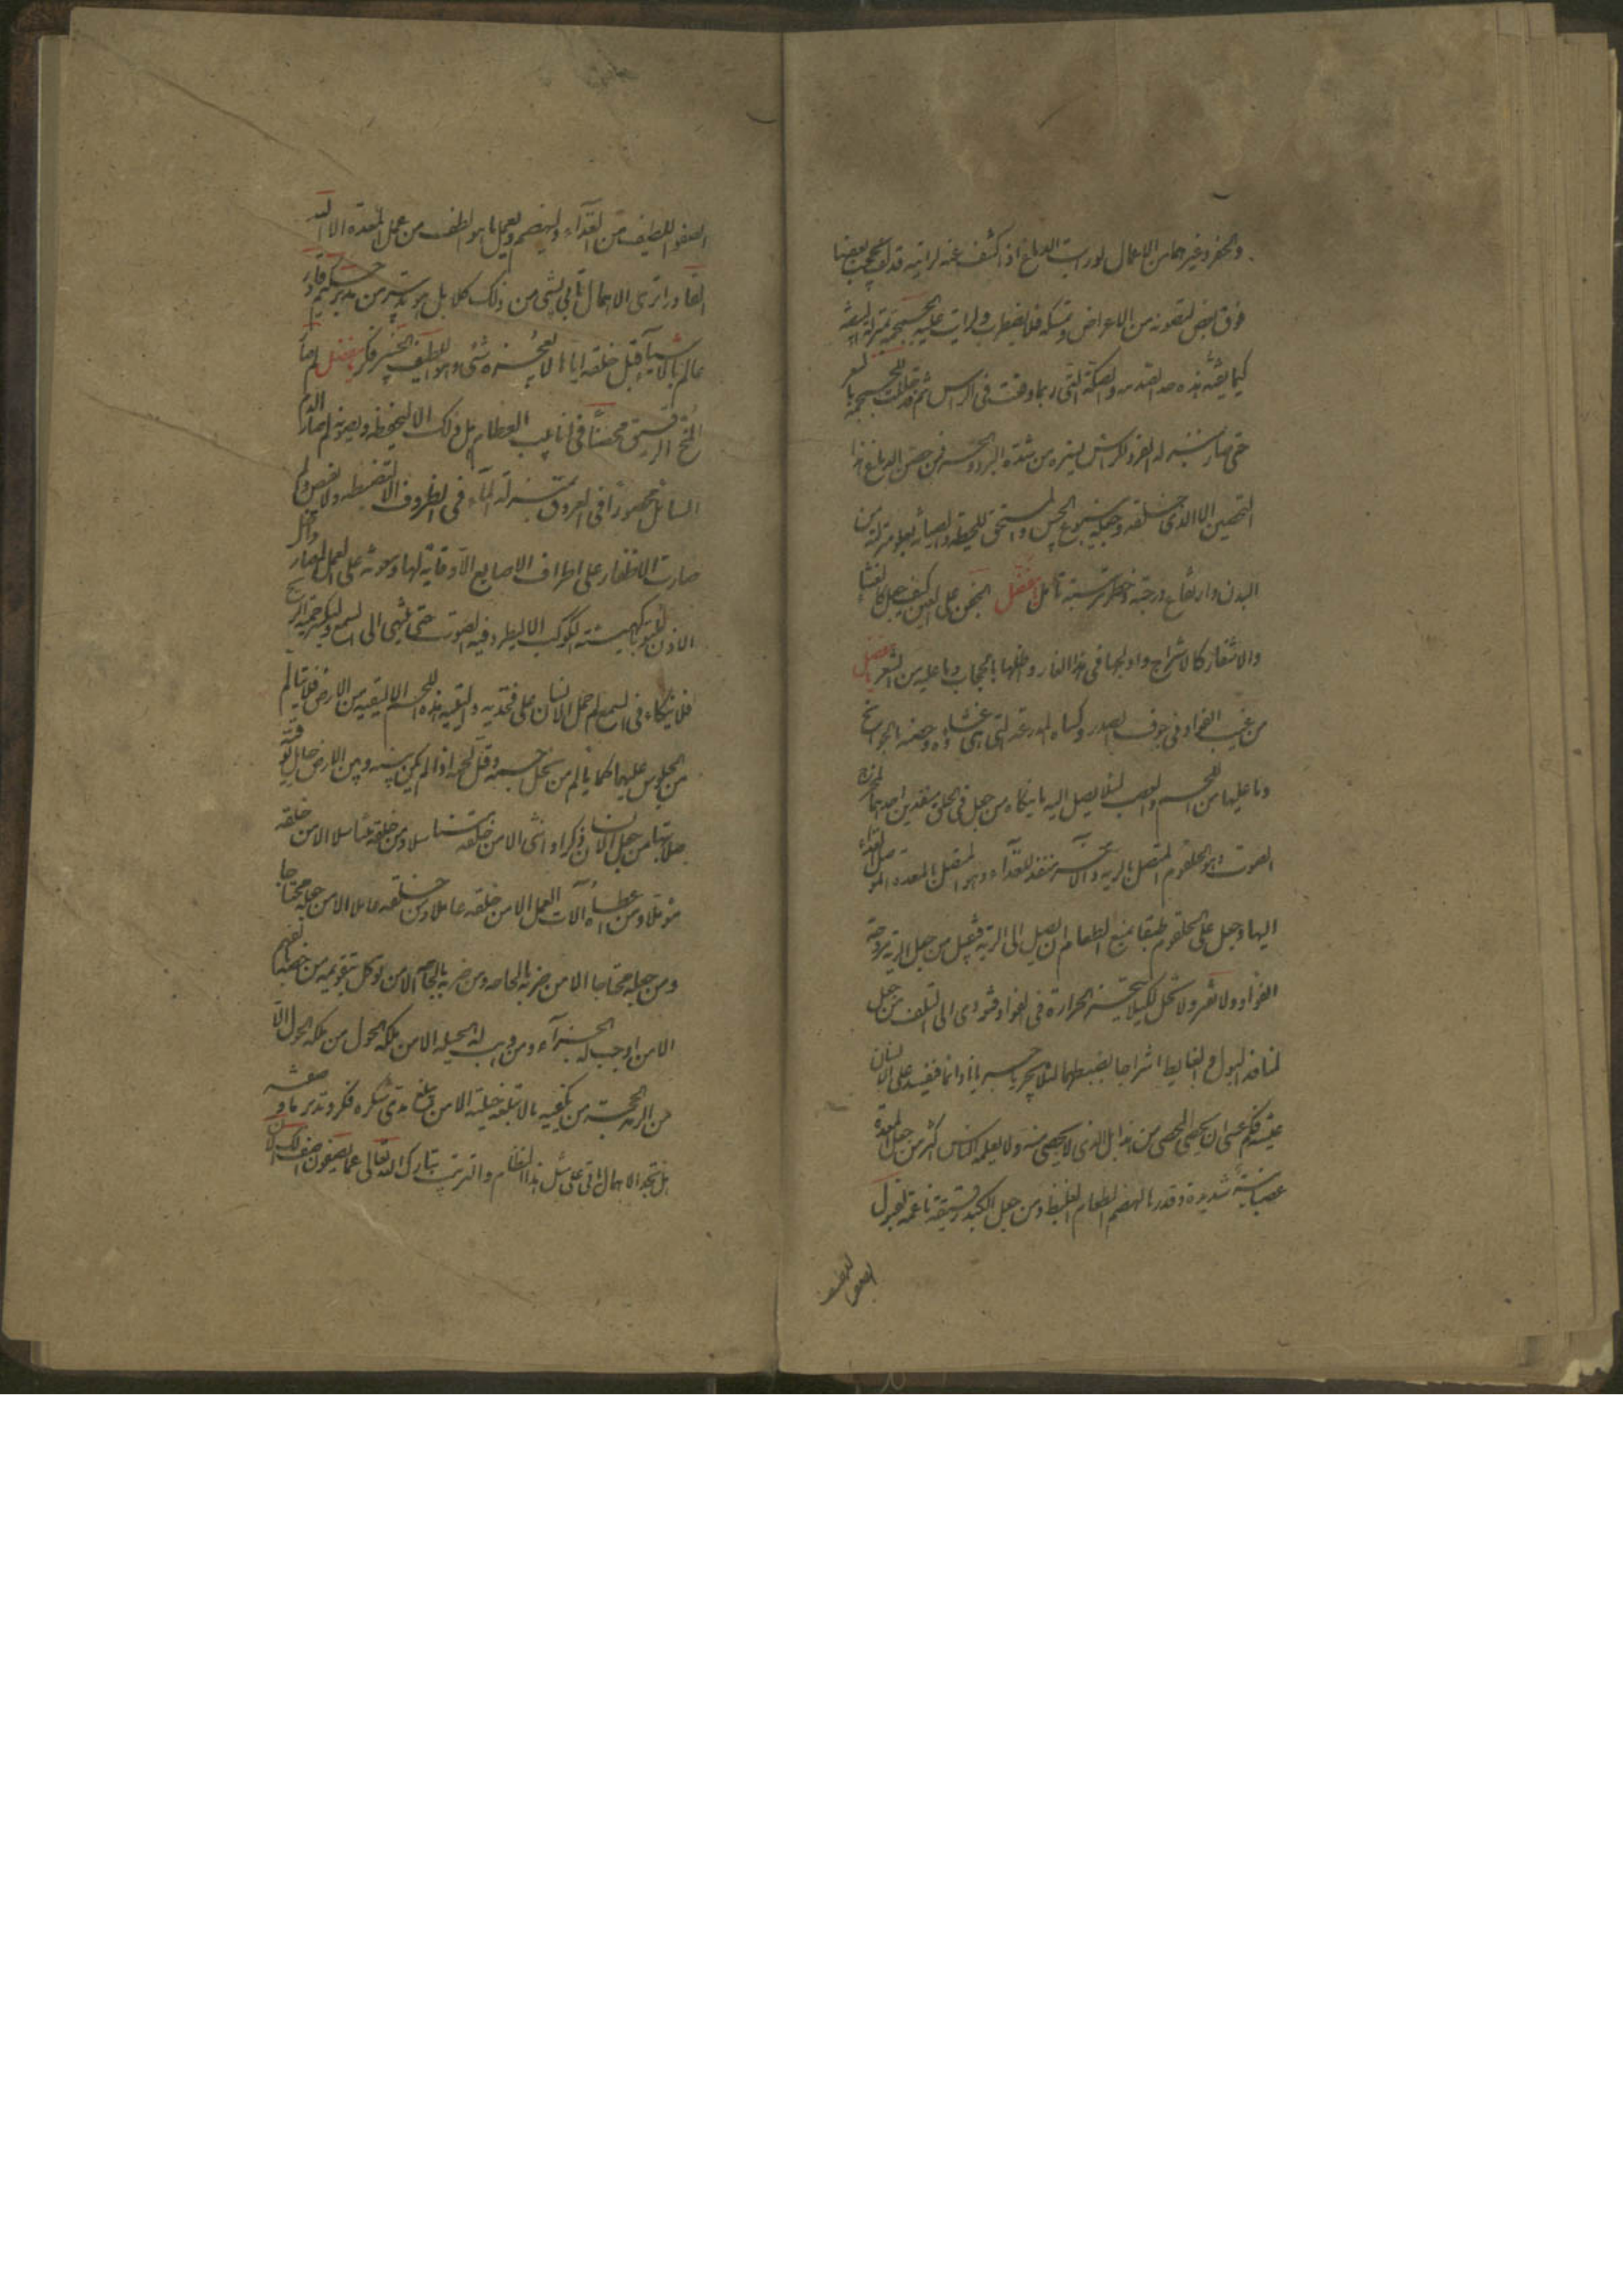 والحفر وغيرهما من الاعمال لو رايت الدماغ اذا كشف عنه لرايته قد لف بحجب بعضها
فوق بعض لتصونه من الاعراض وتمسكه فلا يضطرب ولرايت عليه الجمجمة بمنزلة البيضة
كيما يقيه هذه صد الصدمه والصكة التى ربما وقعت فى الراس ثم قد جللت الجمجمة بالشعر
حتى صار بمنزله الفرو للراس يستره من شدة البرد والحر فمن حصن الدماغ هذا
التحصين الا الذى خلقه وجعله ينبوع الحس والمستحق للحيطة والصيانة بعلو منزلته من
البدن وارتفاع درجته وخطر مرتبته تامل يا مفضل الجفن على العين كيف جعل كالغشاء
والاشفار كالاشراج واولجها فى هذا الغار واظلها بالحجاب وما عليه من الشعر يا مفضل
من غيب الفواد فى جوف الصدر وكساه المدرعة التى هى غشاؤه وحصنه بالجوانح
وما عليها من اللحم والعصب لئلا يصل اليه ما ينكاه من جعل فى الحلق منفذين احدهما لمخرج
الصوت وهو الحلقوم المتصل بالريه والاخر منفذ للغذآء وهو المتصل بالمعدة الموصل الغذاء
اليها وجعل على الحلقوم طبقا يمنع الطعام ان يصل الى الرية فيقتل من جعل الرية مروحة
الفواد ولا تفتر ولا تخل لكيلا يتحيز الحرارة فى الفواد فتودى الى التلف من جعل
لمنافذ البول والغايط اشراجا يضبطهما لئلا يجريا جريانا دائما فيفسد على الانسان
عيشه فكم عسى ان يحصى المحصى من هذا بل الذى لا يحصى منه ولا يعلمه الناس اكثر من جعل المعدة
عصبانية شديدة وقدرها لهضم الطعام الغليظ ومن جعل الكبد رقيقة ناعمة لقبول
الصفو
الصفو اللطيف من الغذآء ولتهضم وتعمل ما هو الطف من عمل المعدة الا الله
القادر اترى الاهمال ياتى بشى من ذلك كلا بل هو تدبير من مدبر حكيم قادر
عالم بالاشيآء قبل خلقه اياها لا يعجزه شى وهو اللطيف الخبير فكر يا مفضل لم صار
المخ الرقيق محصنا فى انابيب العظام هل ذلك الا ليحفظه ويصونه لم صار الدم
السائل محصورا فى العروق بمنزلة المآء فى الظروف الا لتضبطه ولا يفيض ولم
صارت الاظفار على اطراف الاصابع الا وقاية لها ومعونة على العمل لم صار داخل
الاذن ملتويا كهيئة الكوكب الا ليطرد فيه الصوت حتى ينتهى الى السمع وليكسر حمة الريح
فلا ينكاء فى السمع لم حمل الانسان على فخذيه واليتيه هذه اللحم الا ليقيه من الارض فلا يتالم
من الجلوس عليهما كما يالم من نحل جسمه وقل لحمه اذا لم يكن بينه وبين الارض حايل يوقيه
صلابتها من جعل الانسان ذكرا وانثى الا من خلقه متناسلا ومن خلقه متناسلا الا من خلقه
مؤملا ومن اعطاه آلات العمل الا من خلقه عاملا ومن خلقه عاملا الا من جعله محتاجا
ومن جعله محتاجا الا من ضربه بالحاجه ومن ضربه بالحاجة الا من توكل بتقويمه من خصه بالفهم
الا من اوجب له الجزآء ومن وهب له الحيله الا من ملكه الحول ومن ملكه الحول الا
من الزمه الحجة من يكفيه ما لا تبلغه حيلته الا من لم يبلغ مدى شكره فكر وتدبر ما وصفته
هل تجد الاهمال ياتى على مثل هذا النظام والترتيب تبارك الله تعالى عما يصفون